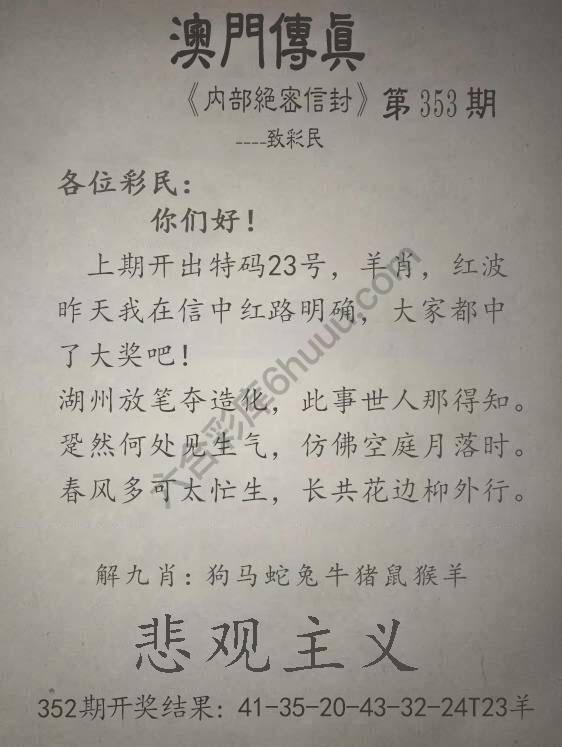 澳門傳真
《内部絕密信封》第353期
----致彩民
各位彩民:
你们好!
上期开出特码23号，羊肖，红波
昨天我在信中红路明确，大家都中
了大奖吧!
湖州放笔夺造化，此事世人那得知。
跫然何处见生气，仿佛空庭月落时。
春风多可太忙生，长共花边柳外行。
六合彩库6huuu.com
解九肖:狗马蛇兔牛猪鼠猴羊
悲观主义
352期开奖结果: 41-35-20-43-32-24T23羊